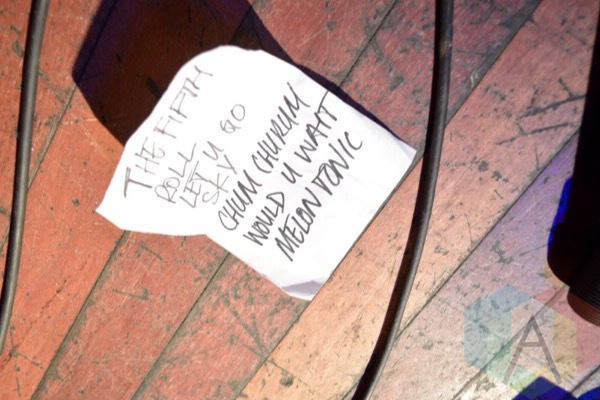 THE FIFTH
ROLL
LET U GO
SKY
CHUM CHURUM
WOULD U WAIT
MELON TONIC
A